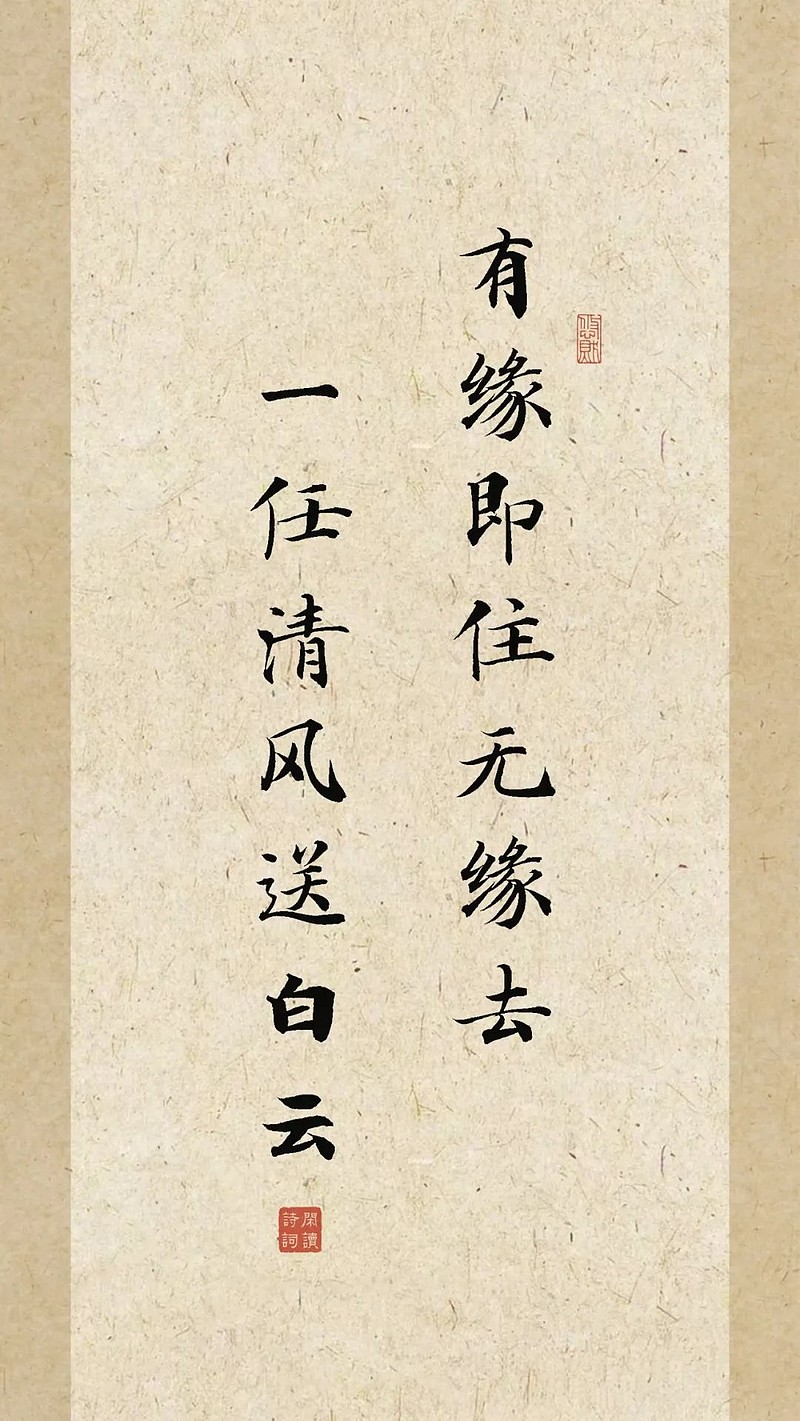 有缘即住无缘去
一任清风送白云
閑讀
詩詞